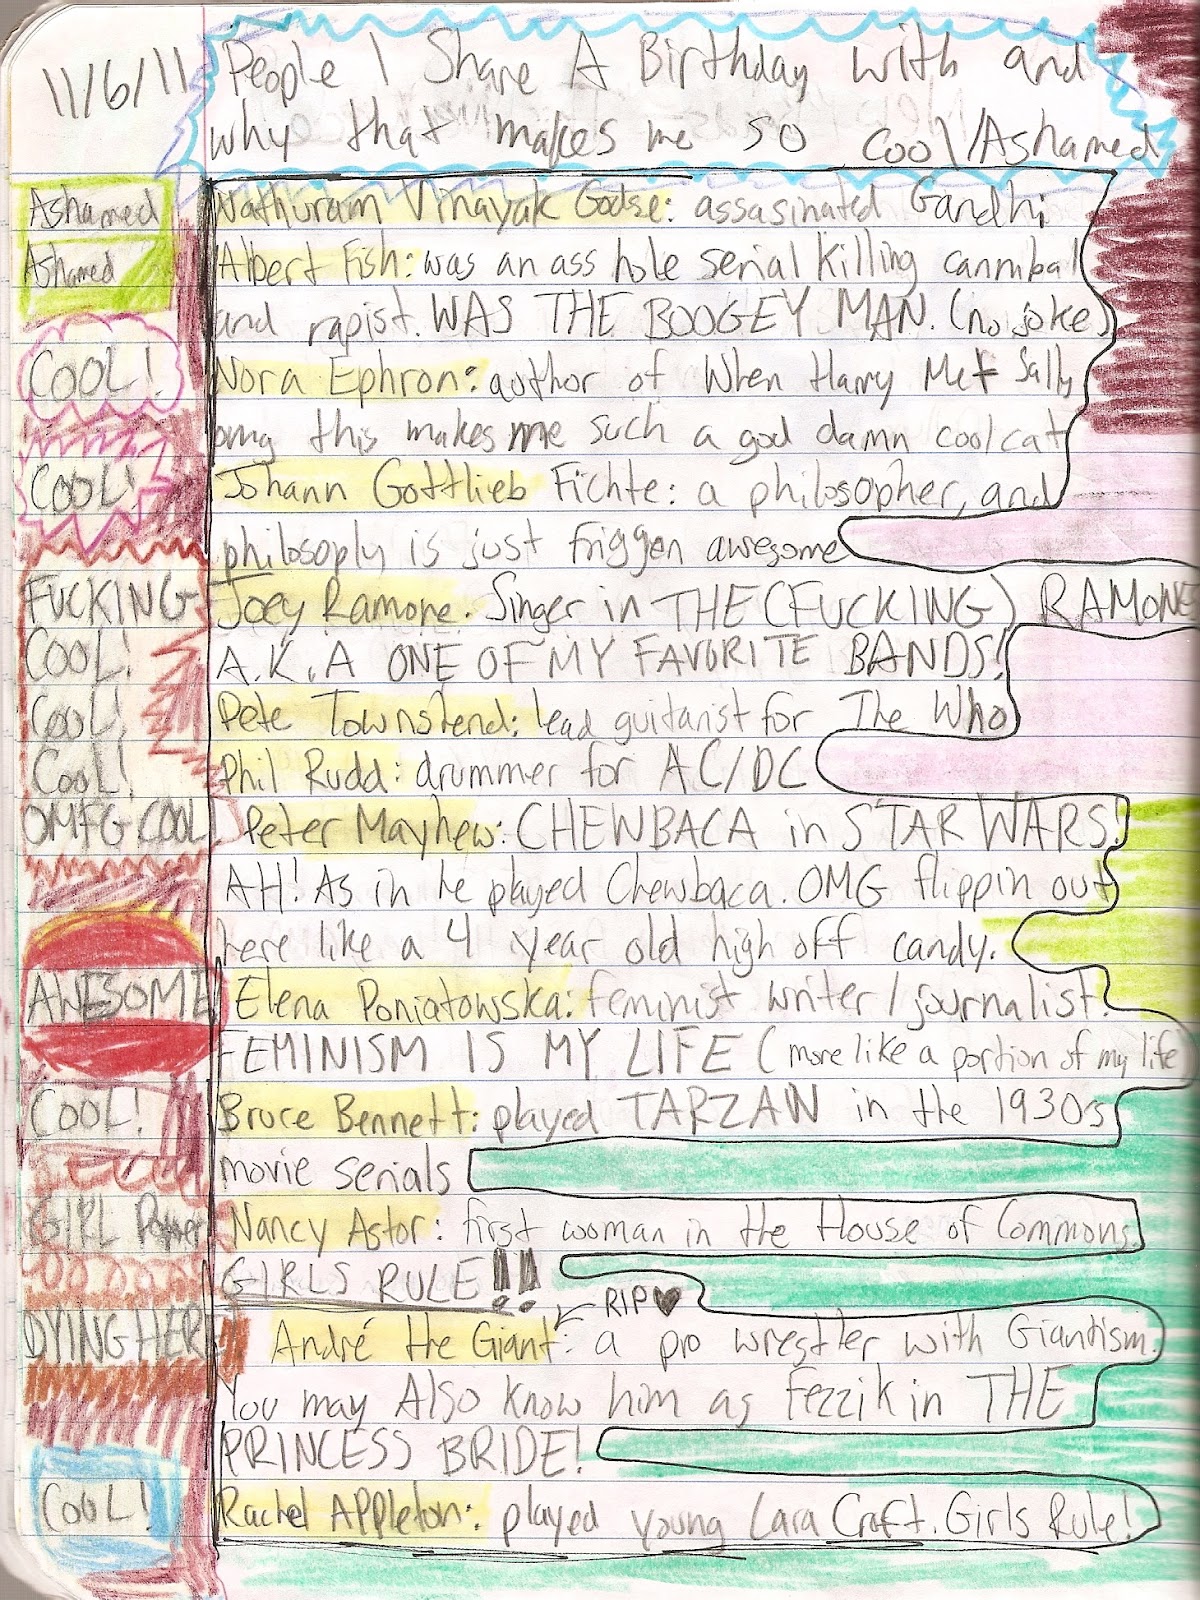 11/6/11 People I Share A Birthday with and
why that makes me so cool/Ashamed
Ashamed Nathuram Vinayak Godse: assasinated Gandhi
Ashamed Albert Fish: was an ass hole serial killing cannibal
and rapist. WAS THE BOOGEY MAN. (no joke)
COOL! Nora Ephron: author of When Harry Met Sally
omg this makes me such a god damn cool cat
COOL! Johann Gottlieb Fichte: a philosopher, and
philosoply is just friggen awesome
FUCKING Joey Ramone. Singer in THE (FUCKING) RAMONES
COOL! A.K.A ONE OF MY FAVORITE BANDS!
Cool! Pete Townstend: lead guitarist for The Who
Cool! Phil Rudd: drummer for AC/DC
OMFG COOL Peter Mayhew: CHEWBACA in STAR WARS!
AH! As in he played Chewbaca. OMG flippin out
here like a 4 year old high off candy.
AWESOME Elena Poniatowska: feminist writer/journalist.
FEMINISM IS MY LIFE (more like a portion of my life
COOL! Bruce Bennett: played TARZAN in the 1930s
movie serials
GIRL Power Nancy Astor: first woman in the House of Commons.
GIRLS RULE!!
RIP
DYING HERE André the Giant: a pro wrestler with Giantism.
You may Also know him as Fezzik in THE
PRINCESS BRIDE!
COOL! Rachel Appleton: played young Lara Croft. Girls Rule!